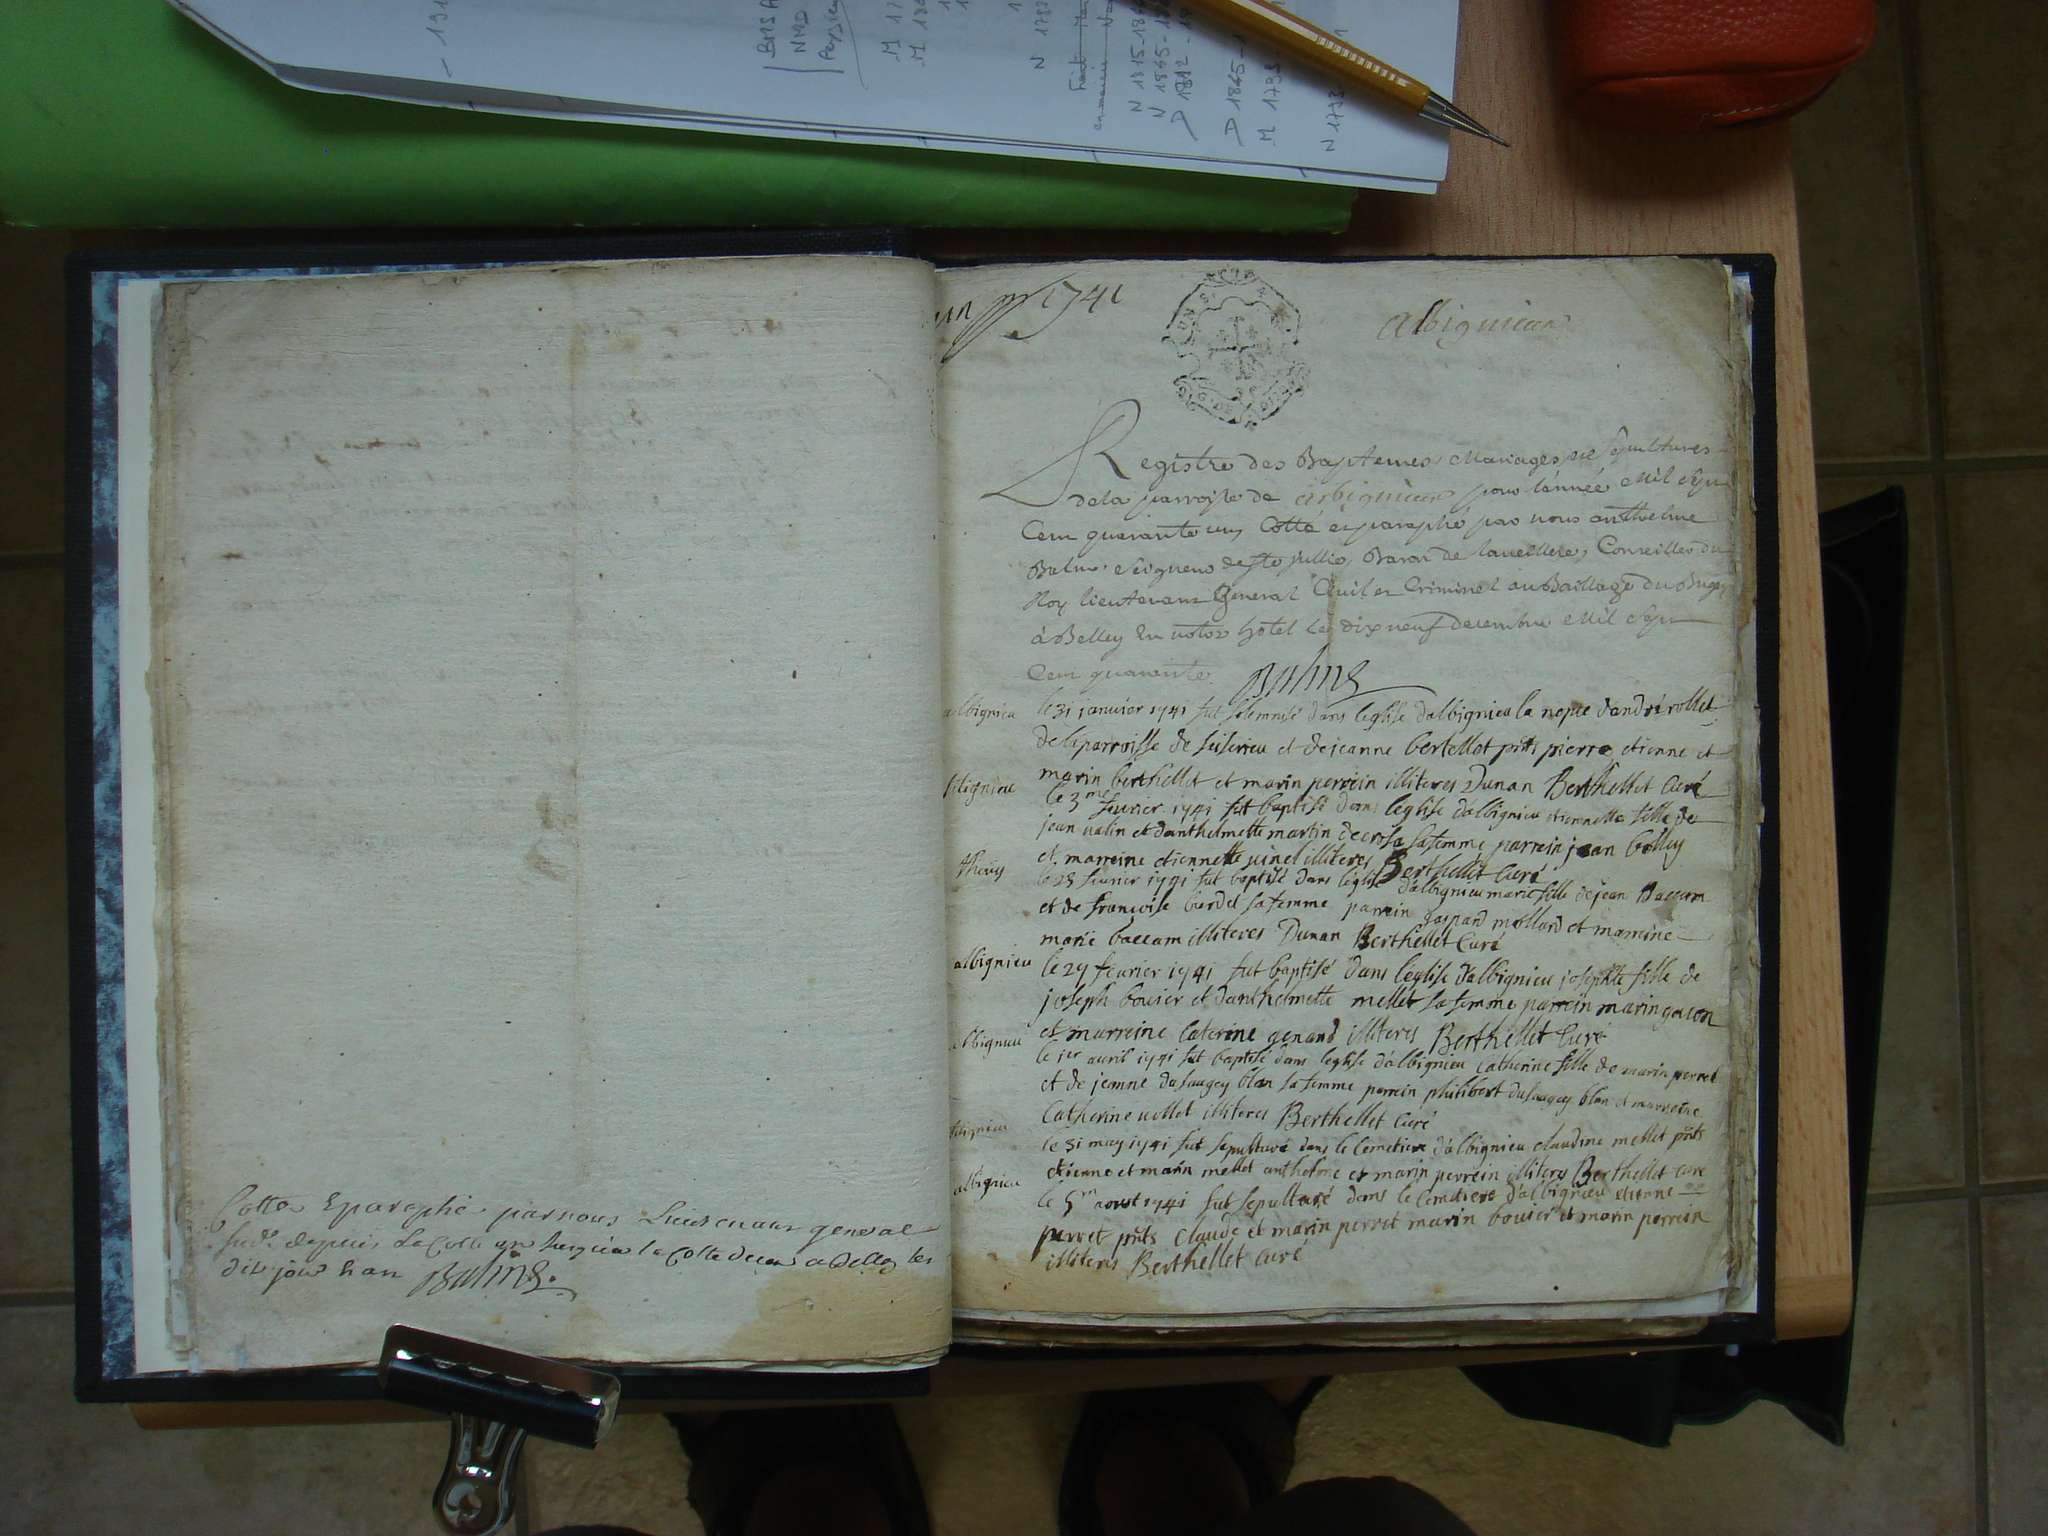 BMSA
NMD
N 1815-18
N 1845-1
D 1812-
D 1845-1
M 1793-
1741
albignieu
Registre des Baptemes, Mariages, et Sepultures
de la parroisse de arbignieu pour l'année Mil Sept
Cent quarante un Cotté et paraphé par nous anthelme
Balme Seigneur de Ste jullie, Baron de Conseiller du
Roy lieutenant General Civil et Criminel au Baillage du Bugey
à Belley En notre hotel Le dix neuf decembre Mil Sept
Cent quarante. Balme
albignieu
le 31 janvier 1741 fut solemnisé dans leglise d'albignieu la nopce d'andré rollet
de la parroisse de et de jeanne bertellet pnts pierre, etienne et
marin berthellet et marin perrein illiteres Dunan Berthellet Curé
albignieu
le 3me feurier 1741 fut baptisé dans leglise d'albignieu etiennette fille de
jean et d'anthelmette martin sa femme parrein jean bolley
et marreine etiennette illiteres Berthellet Curé
le 25 feurier 1741 fut baptisé dans leglise d'albignieu marie fille de jean Baccam
et de françoise sa femme parrein gaspard mollard et marreine
marie baccam illiteres Dunan Berthellet Curé
albignieu
le 27 feurier 1741 fut baptisé dans leglise d'albignieu josephte fille de
joseph bouier et d'anthelmette mellet sa femme parrein marin gacon
et marreine Caterine genand illiteres Berthellet Curé
albignieu
le 1er auril 1741 fut baptisé dans leglise d'albignieu Catherine fille de marin perret
et de jeanne dusaugey blan sa femme parrein philibert dusaugey blan et marreine
Catherine illiteres Berthellet Curé
albignieu
le 31 may 1741 fut sepulturé dans le Cemetiere d'albignieu claudine mellet pnts
etienne et marin mellet anthelme et marin perrein illiteres Berthellet Curé
albignieu
le 5m aoust 1741 fut sepulturé dans le Cemetiere d'albignieu etienne
perret pnts claude et marin perret marin bouier et marin perrein
illiteres Berthellet Curé
Cotté Eparaphé par nous Lieutenant general
depuis La Cotte un jusqu'a la Cotte a Belley les
dit jour h an Balme